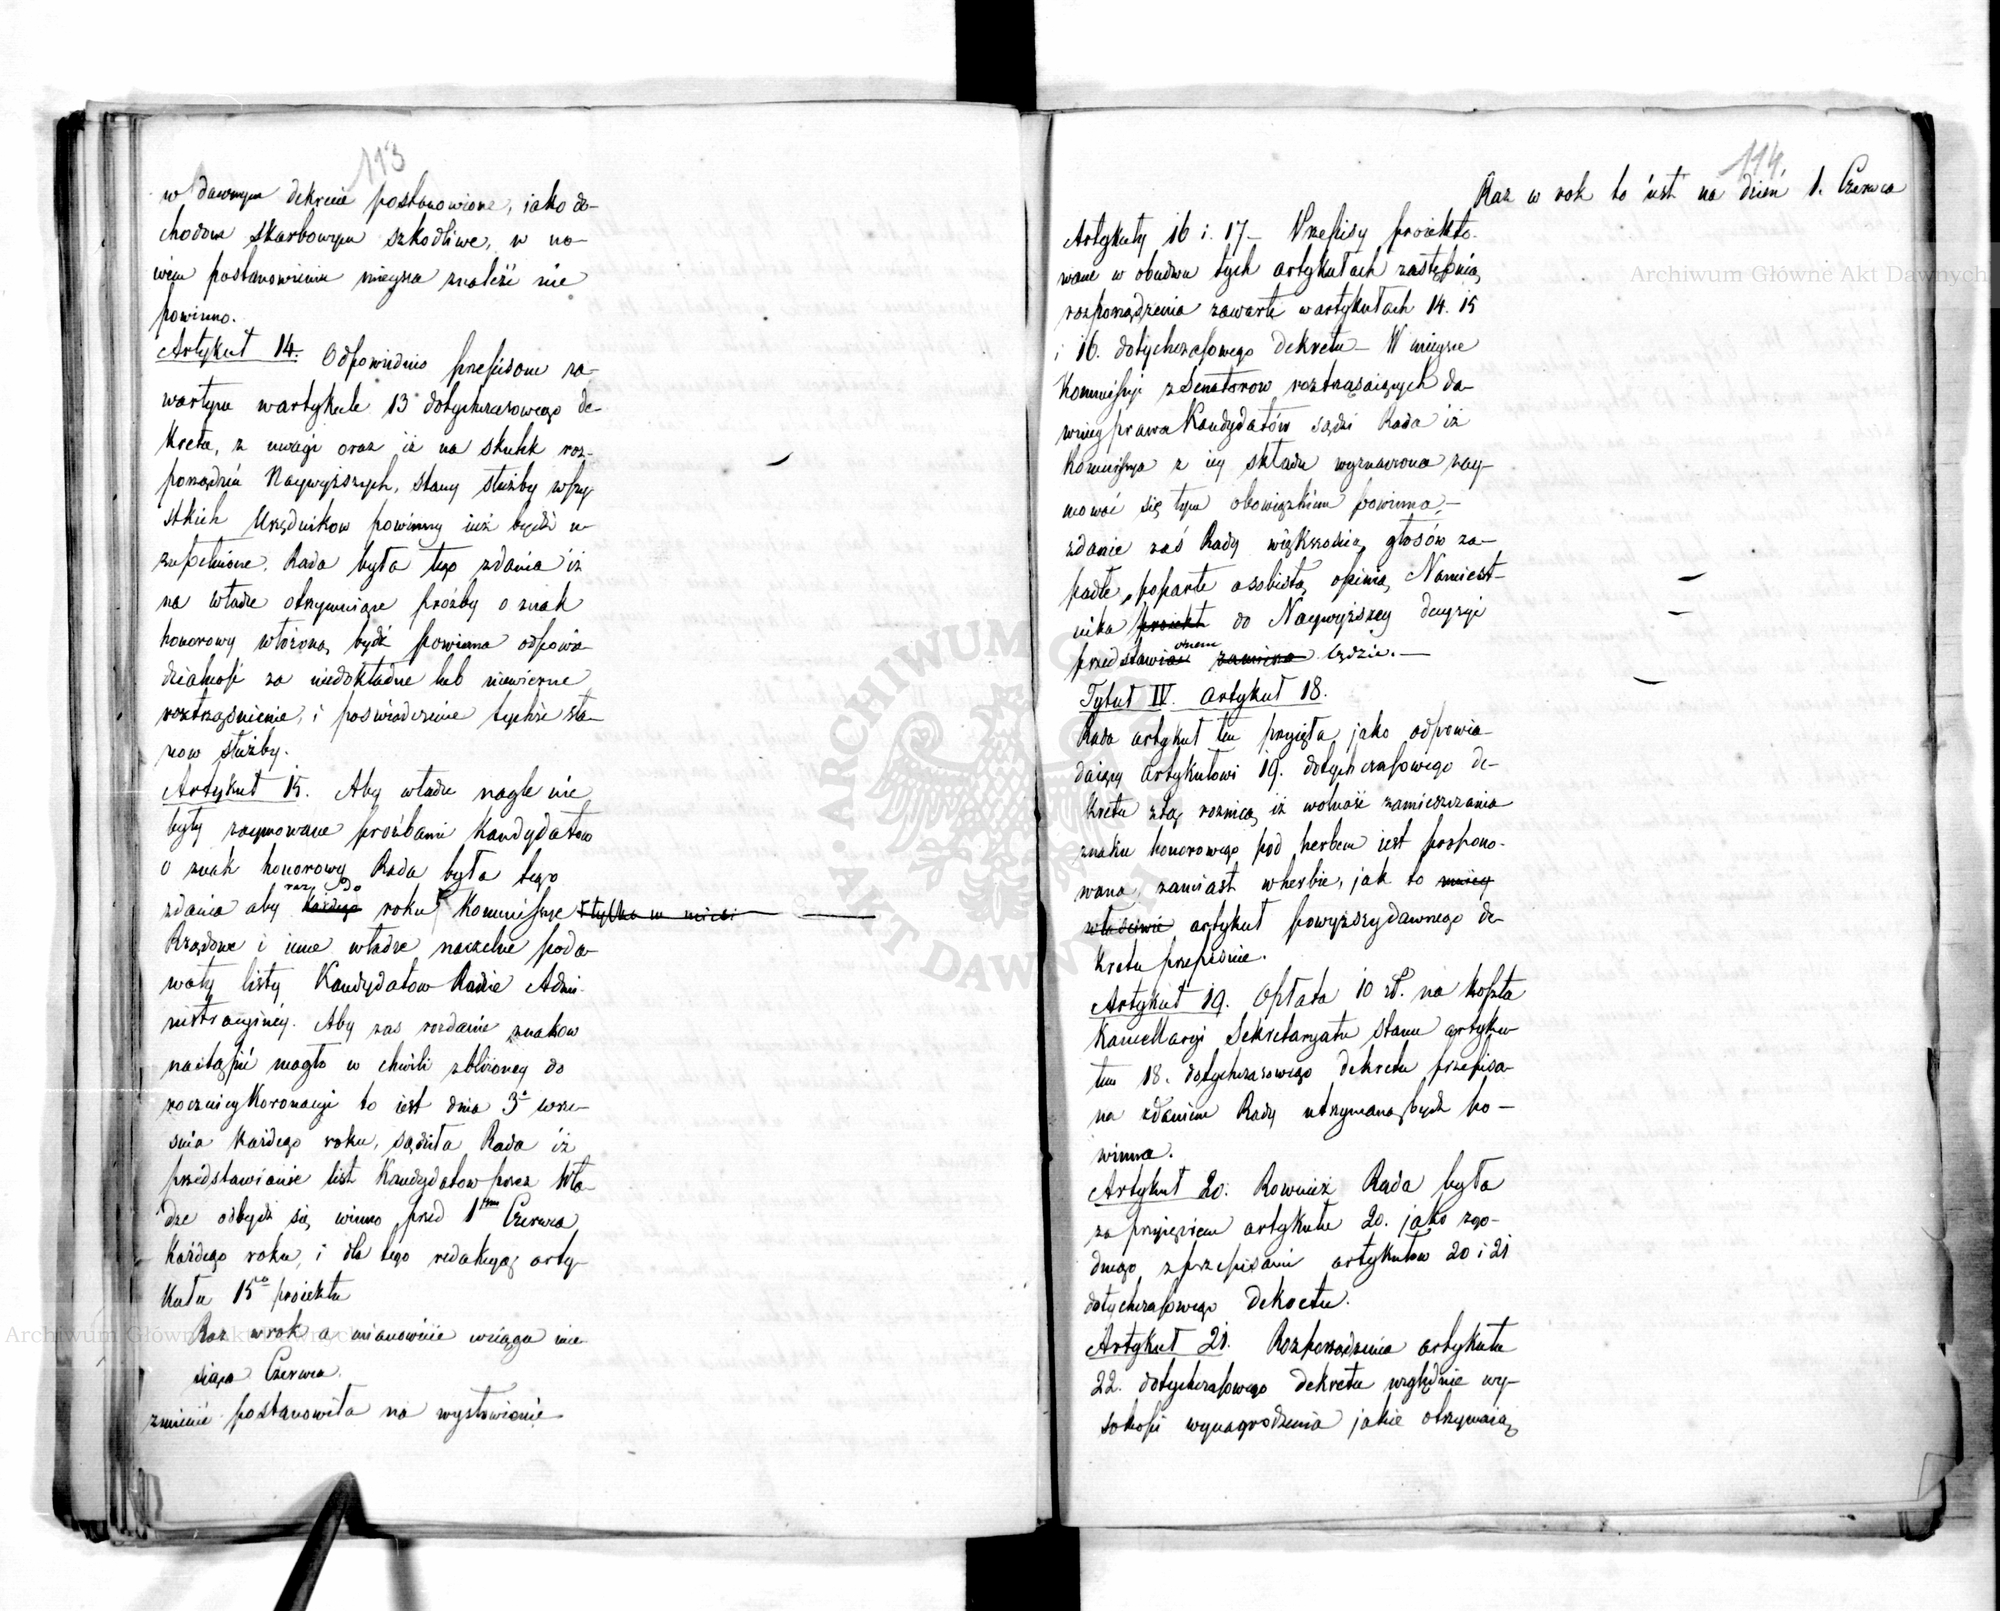 113
w dawnym dekrecie postanowione, iako do-
chodom skarbowym szkodliwe, w no-
wém postanowieniu mieysca znaleść nie
powinno.
Artykuł 14. Odpowiednio przepisom za-
wartym w artykule 13 dotychczasowego de-
kretu, z uwagi oraz iż na skutek roz-
porządzeń Naywyższych, stany służby wszy-
stkich Urzędnikow powinny iuż bydź u-
zupełnione, Rada była tego zdania iż
na władze otrzymuiące prośby o znak
honorowy włożoną bydź powinna odpowie-
dzialność za niedokładne lub niewierne
roztrząśnienie, i poświadczenie tychże sta-
now służby.
Artykuł 15. Aby władze nagle nie
były zaymowane prośbami Kandydatow
o znak honorowy Rada była tego
zdania aby raz do każdego roku Kommissye tylko w
Rządowe i inne władze naczelne poda-
wały listy Kandydatow Radzie Admi-
nistracyinéy. Aby zas rozdanie znakow
nastąpić mogło w chwili zbliżoney do
rocznicy Koronacyi to iest dnia 3o wrze-
śnia każdego roku, sądziła Rada iż
przedstawianie list Kandydatow przez Wła-
dze odbydź się winno przed 1ym Czerwca
każdego roku, i dla tego redakcyą arty-
kułu 15o proiektu
Raz w rok a mianowicie w ciągu mie-
siąca Czerwca.
zmienić postanowiła na wysłowienie
114.
Raz w rok to iest na dzień 1. Czerwca
Artykuły 16 i. 17 – Przepisy proiekto-
wane w obudwu tych artykułach zastępuią
rozporządzenia zawarte w artykułach 14. 15
i 16. dotychczasowego dekretu – W mieysce
Kommissyi z Senatorow roztrząsaiących da-
wniey prawa Kandydatów sądzi Rada iż
Kommissya z iey składu wyznaczona zay-
mować się tym obowiązkiem powinna, –
zdanie zaś Rady większością głosów za-
padłe, poparte osobistą opinią Namiest-
nika proiekt do Naywyższey decyzyi
przedstawionem będzie. –
Tytuł IV. artykuł 18.
Rada artykuł ten przyięła jako odpowia-
daiący artykułowi 19. dotychczasowego de-
kretu z tą roznicą iż wolność zamieszczania
znaku honorowego pod herbem iest propono-
wana, zamiast w herbie, jak to
właściwie artykuł powyższy dawnego de-
kretu przepisuie.
Artykuł 19. Opłata 10 zł. na koszta
Kancellaryi Sekretaryatu stanu artyku-
łem 18. dotychczasowego dekretu przepisa-
na zdaniem Rady utrzymaną bydź po-
winna.
Artykuł 20. Rownież Rada była
za przyięciem artykułu 20. jako zgo-
dnego z przepisami artykułow 20 i 21
dotychczasowego dekretu.
Artykuł 21. Rozporządzenia artykułu
22. dotychczasowego dekretu względnie wy-
sokości wynagrodzenia jakie otrzymaią
Archiwum Główne Akt Dawnych
Archiwum Główne Akt Dawnych
ARCHIWUM GŁÓWNE AKT DAWNYCH